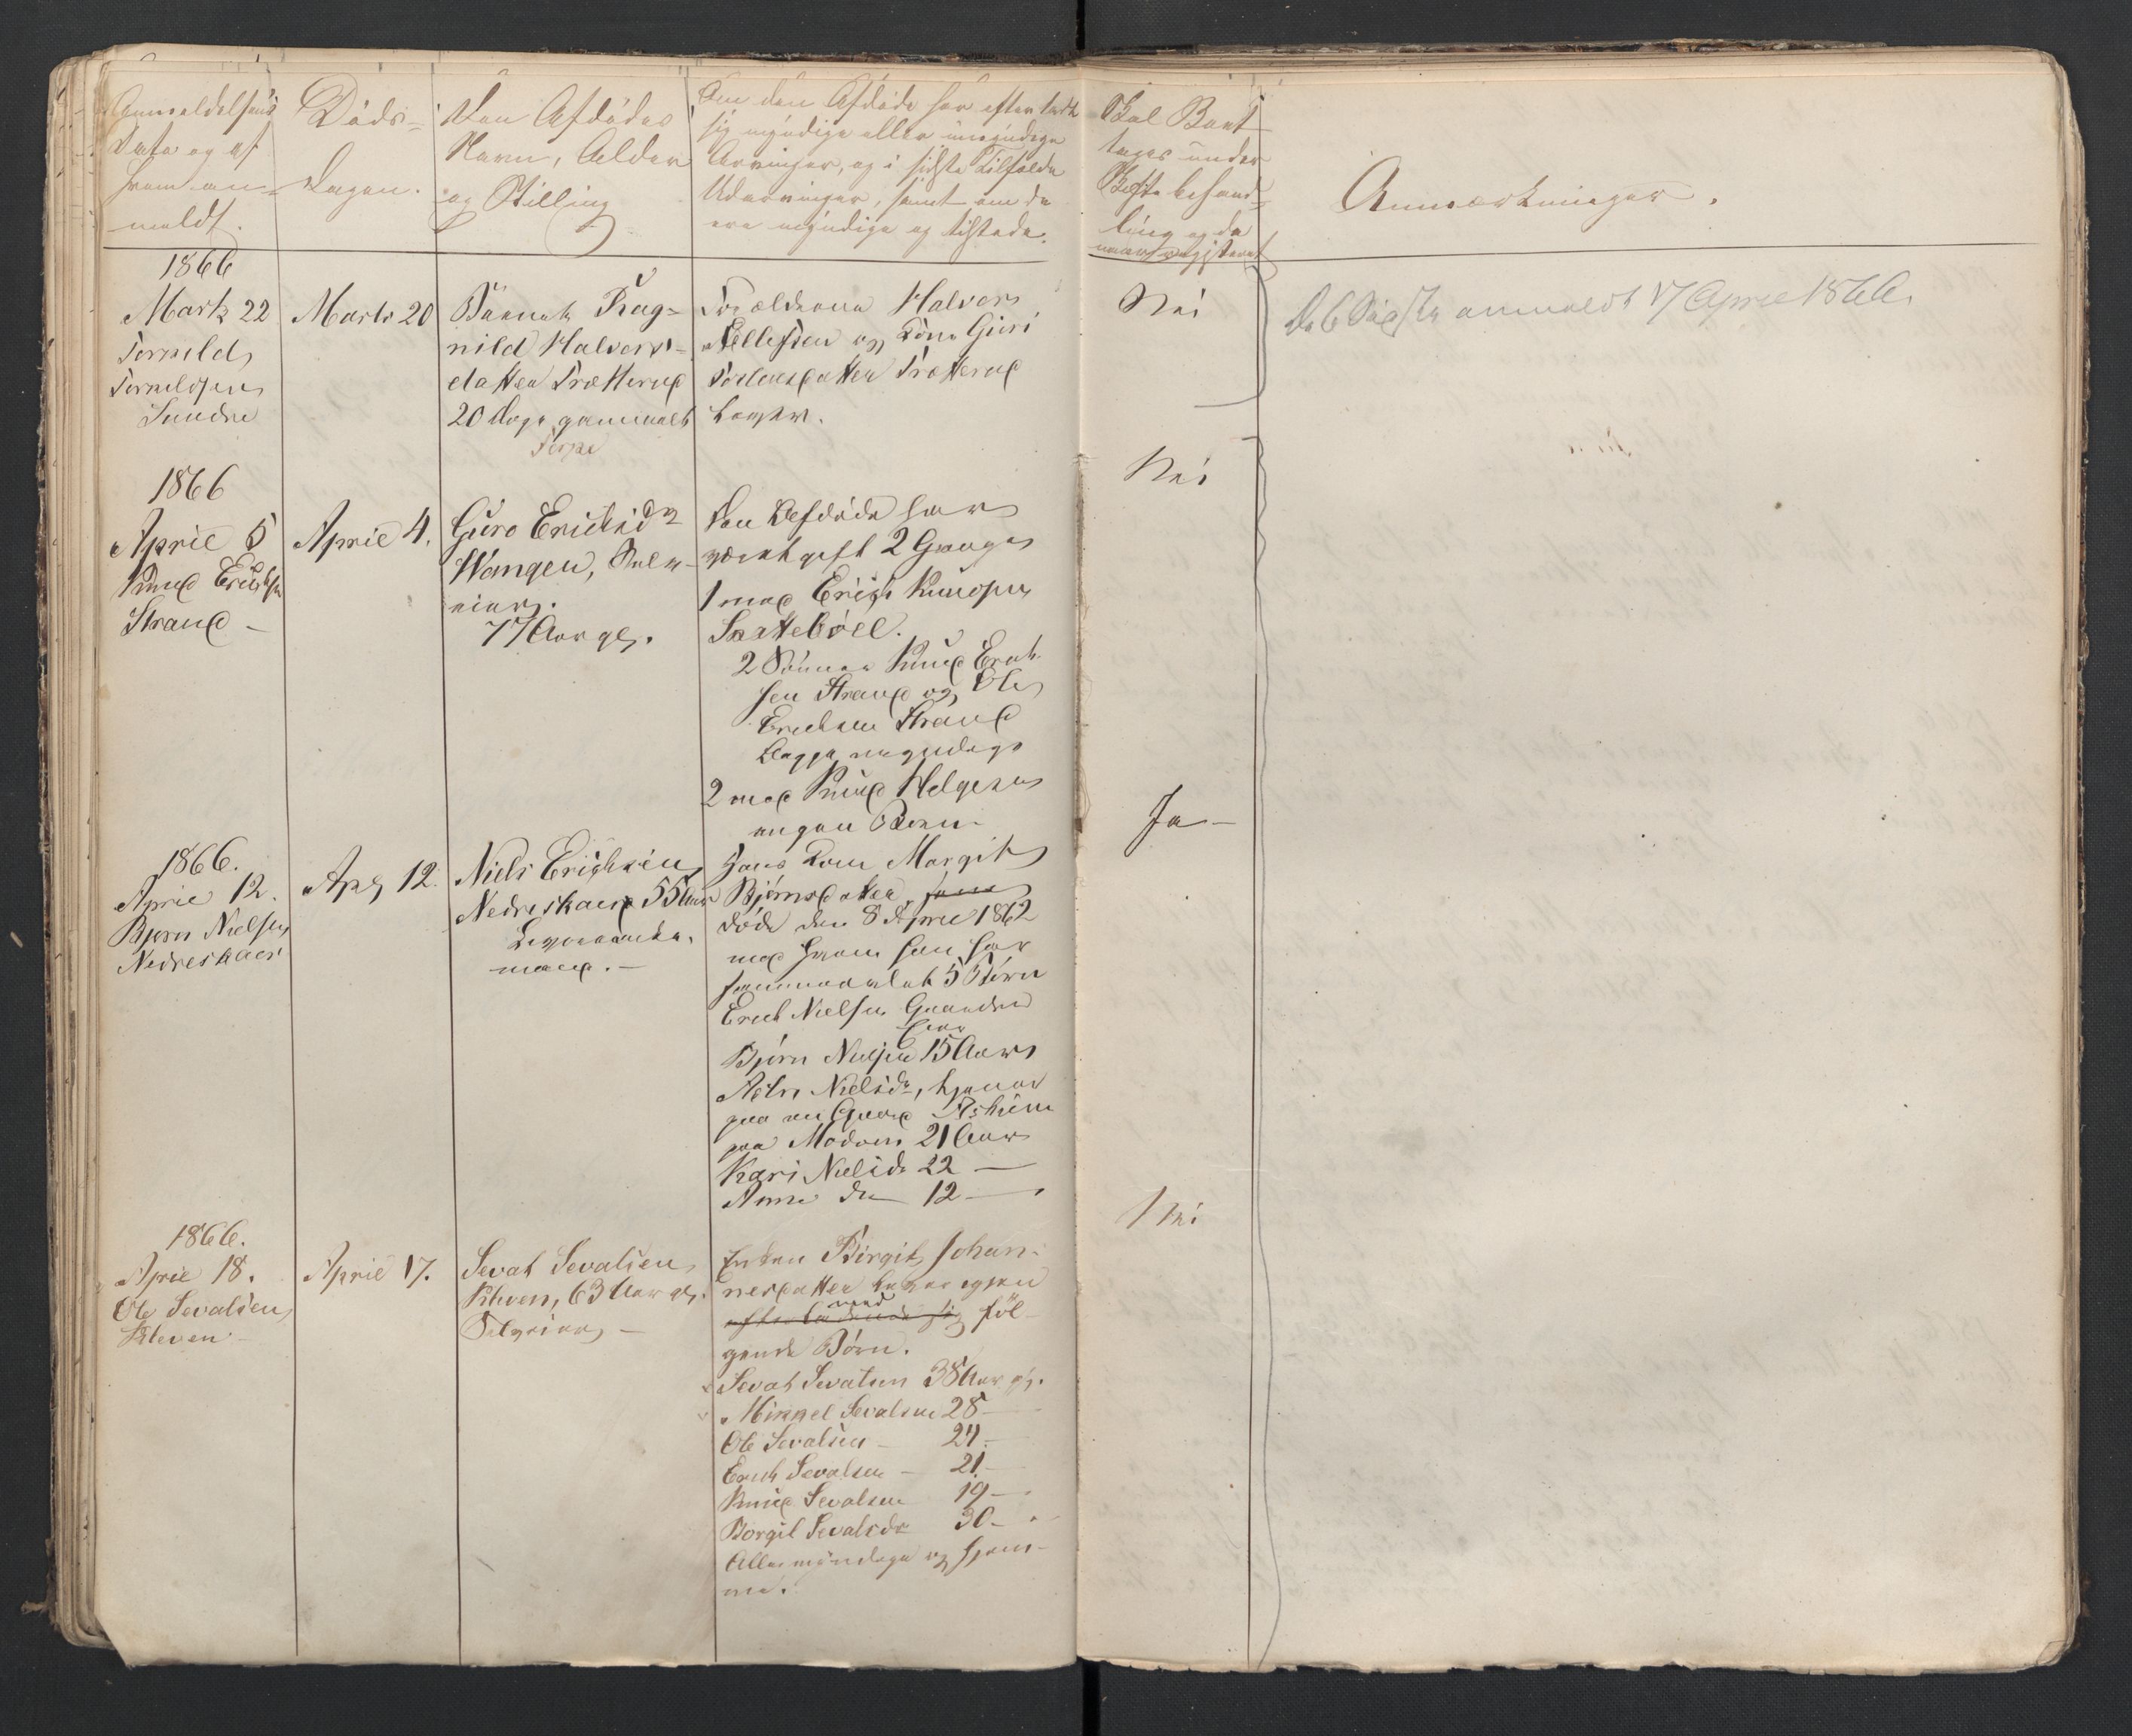 Anmeldelsens
Dato og af
hvem an-
meldt.
Døds-
Dagen.
Den Afdødes
Navn, Alder
og Stilling
Om den Afdøde har efterladt
sig myndige eller umyndige
Arvinger, og i sidste Tilfælde
Udarvinger, samt om de
ere myndige og tilstede.
Skal Boet
tages under
Skifte behand-
ling og da
naar registeret
Anmærkninger.
1866
Marts 22
Torkild
Torkildsen
Sundre
Marts 20
Barnet Rag-
nild Halvors-
datter Trætterud
20 Dage gammelt
Torpe
Forældrene Halvor
Ellefsen og Kone Guri
Torkensdatter Trætterud
Nei
De 6 Sidste anmeldt 17 April 1866.
1866
April 5
Knud Erichsen
Strand
April 4.
Guro Erichsdr
Wangen,
77 Aar gl.
Den Afdøde har
været gift 2 Gange
1 med Erich Knudsen
Skattebøel.
2 Sønner Knud Erich-
sen Strand og Ole
Erichsen Strand
begge myndige
2 med Knud Helgesen
ingen Børn
Nei
1866.
April 12.
Bjørn Nielsen
Nedreskaer
Apr 12.
Niels Erichsen
Nedreskaer 55 Aar
mand.
Hans Kone Margit
Bjørnsdatter
døde den 8 April 1862
med hvem han har
sammenavlet 5 Børn
Erich Nielsen
Bjørn Nielsen 15 Aar
Nielsdr, tjener
paa en Gaard
paa Modum 21 Aar
Kari Nielsdr 22 —
Anne do 12 —
Ja —
1866.
April 18.
Ole Sevalsen
Kleven
April 17.
Sevat Sevatsen
Kleven, 63 Aar gl.
Selveier
Enken Birgit Johan-
nesdatter
efterladende sig føl-
gende Børn.
Sevat Sevatsen 38 Aar gl.
Mikkel Sevatsen 28 —
Ole Sevatsen — 24 —
Erich Sevatsen — 21 —
Knud Sevatsen 19 —
Børgil Sevatsdr 30 —
Alle myndige og hjem-
me.
Nei